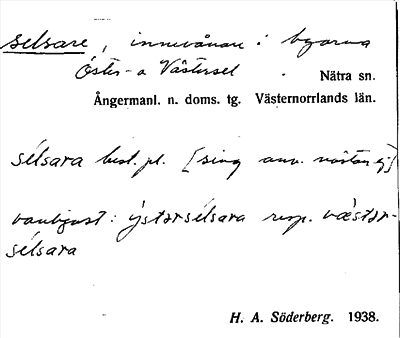 selsare, innevånare i byarna
Öster- o Västersel
Nätra sn.
Ångermanl. n. doms. tg. Västernorrlands län.
sélsara best. pl. [sing anv. nästan ej]
vanligast: ýstərsélsara resp. vǽstər-
sélsara
H. A. Söderberg. 1938.